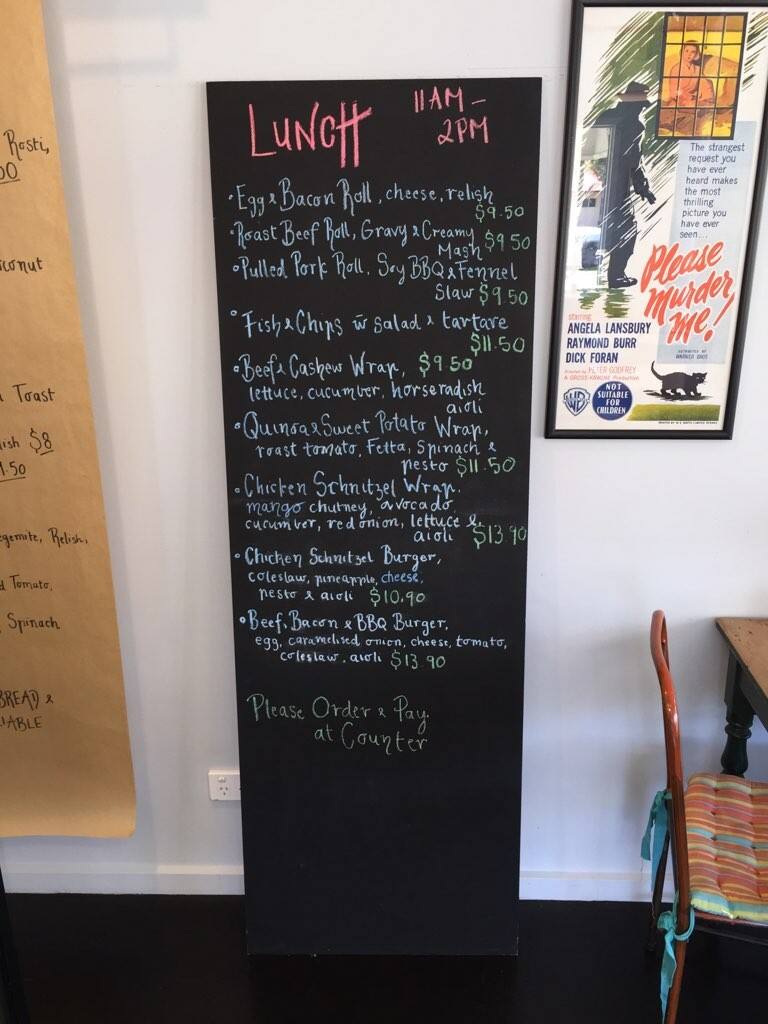 LUNCH 11AM -
2PM
• Egg & Bacon Roll, cheese, relish
$9.50
• Roast Beef Roll, Gravy & Creamy
Mash $9.50
• Pulled Pork Roll, Soy BBQ & Fennel
Slaw $9.50
• Fish & Chips w̄ salad & tartare
$11.50
• Beef & Cashew Wrap, $9.50
lettuce, cucumber, horseradish
aioli
• Quinoa & Sweet Potato Wrap,
roast tomato, Fetta, Spinach &
pesto $11.50
• Chicken Schnitzel Wrap,
mango chutney, avocado,
cucumber, red onion, lettuce &
aioli $13.90
• Chicken Schnitzel Burger,
coleslaw, pineapple, cheese,
pesto & aioli $10.90
• Beef, Bacon & BBQ Burger,
egg, caramelised onion, cheese, tomato,
coleslaw, aioli $13.90
Please Order & Pay
at Counter
Rosti,
00
conut
Toast
ish $8
1.50
egemite, Relish,
d Tomato,
Spinach
BREAD &
IABLE
The strangest
request you
have ever
heard makes
the most
thrilling
picture you
have ever
seen...
Please
Murder
Me!
starring
ANGELA LANSBURY
RAYMOND BURR
DICK FORAN
Directed by PETER GODFREY
A GROSS-KRASNE Production
DISTRIBUTED BY
WARNER BROS
WB
NOT
SUITABLE
FOR
CHILDREN